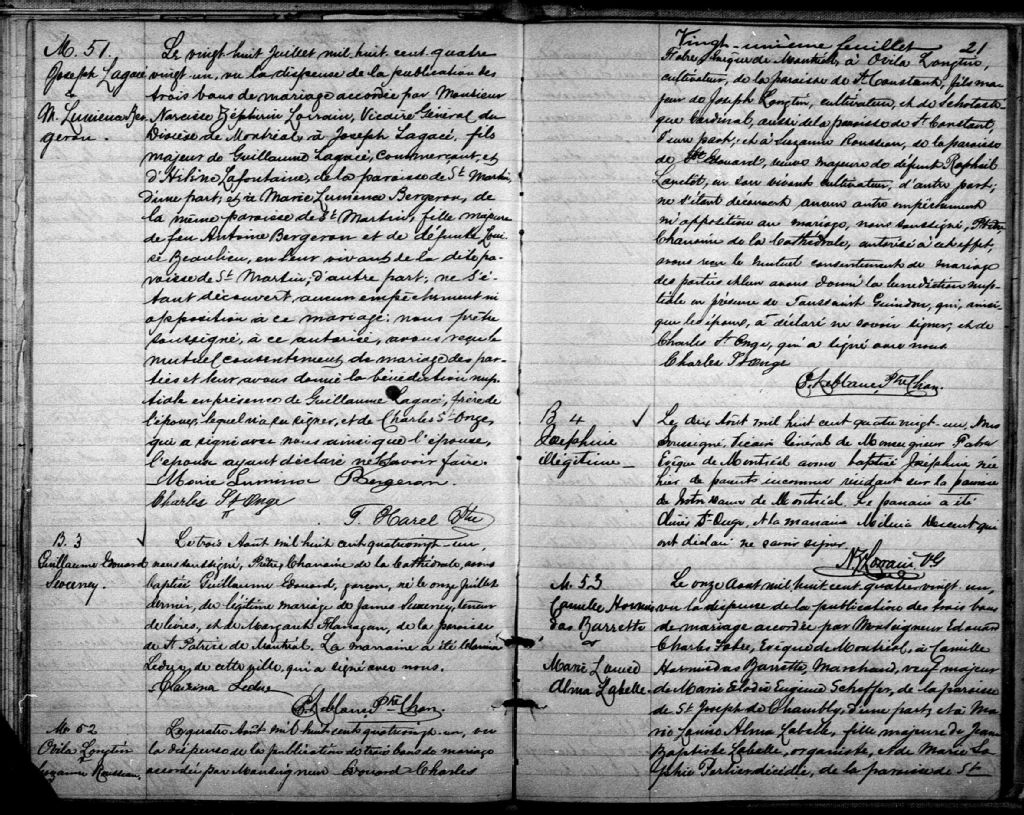 M. 51.
Joseph Lagacé
&
M. Lumina Ber
geron.
Le vingt huit Juillet mil huit cent quatre
vingt un, vu la dispense de la publication des
trois bans de mariage accordée par Monsieur
Narcisse Zéphirin Lorrain, Vicaire Général du
Diocèse de Montréal à Joseph Lagacé, fils
majeur de Guillaume Lagacé, commerçant, et
d'Hélène Lafontaine, de la paroisse de St Martin,
d'une part; et à Marie Lumina Bergeron, de
la même paroisse de St Martin, fille majeure
de feu Antoine Bergeron et de défunte Loui
se Beaulieu, en leur vivant de la dite pa
roisse de St Martin; d'autre part; ne s'é
tant découvert, aucun empêchement ni
opposition à ce mariage: nous prêtre
soussigné, à ce autorisé, avons reçu le
mutuel consentement de mariage des par
ties et leur avons donné la bénédiction nup
tiale en présence de Guillaume Lagacé, frère de
l'époux, lequel n'a su signer, et de Charles St Onge,
qui a signé avec nous ainsi que l'épouse,
l'époux ayant déclaré ne savoir faire.
Marie Lumina Bergeron.
Charles St Onge
T. Harel Ptre
B. 3
Guillaume Edouard
Sweeney.
Le trois Aout mil huit cent quatrevingt-un,
nous soussigné, Prêtre, Chanoine de la Cathédrale, avons
baptisé Guillaume Edouard, garçon, né le onze Juillet
dernier, de légitime mariage de James Sweeney, teneur
de livres, et de Margaret Flanagan, de la paroisse
de St Patrice de Montréal. La marraine a été
Leduc, de cette ville, qui a signé avec nous.
Leduc
Leblanc, Ptre Chan.
M. 52
Ovila Longtin
&
Suzanne Rousseau.
Le quatre Août mil huit cent quatrevingt-un, vu
la dispense de la publication de trois bans de mariage
accordée par Monseigneur Edouard Charles
Vingt-unième feuillet 21
Fabre, Evêque de Montréal, à Ovila Longtin,
cultivateur, de la paroisse de St Constant, fils ma
jeur de Joseph Longtin, cultivateur, et de Scholasti
que Cardinal, aussi de la paroisse de St Constant,
d'une part; et à Suzanne Rousseau, de la paroisse
de St Edouard, veuve majeure de défunt Raphaël
Lanctot, en son vivant cultivateur, d'autre part;
ne s'étant découvert aucun autre empêchement
ni opposition au mariage, nous soussigné, Prêtre
Chanoine de la Cathédrale, autorisé à cet effet,
avons reçu le mutuel consentement de mariage
des parties et leur avons donné la bénédiction nup
tiale en présence de Toussaint Guindon, qui, ainsi
que les époux, a déclaré ne savoir signer, et de
Charles St Onge, qui a signé avec nous
Charles St Onge
Leblanc, Ptre Chan.
B 4
Joséphine
illégitime
Le dix Août mil huit cent quatre vingt-un, Nous
Soussigné, Vicaire Général de Monseigneur Fabre
Evêque de Montréal avons baptisé Joséphine née
hier de parents inconnus résidant sur la paroisse
de Notre Dame de Montréal. Le parrain a été
Olivier St-Onge, et la marraine Vincent qui
ont déclaré ne savoir signer.
N Z Lorrain VG
M. 53
Camille Hormis
das Barrette
&
Marie Louise
Alma Labelle
Le onze Aout mil huit cent quatre vingt-un,
vu la dispense de la publication des trois bans
de mariage accordée par Monseigneur Edouard
Charles Fabre, Evêque de Montréal, à Camille
Hormisdas Barrette, Marchand, veuf majeur
de Marie Elodie Eugénie Scheffer, de la paroisse
de St Joseph de Chambly, d'une part, et à Ma
rie Louise Alma Labelle, fille majeure de Jean
Baptiste Labelle, organiste, et de Marie So
phie Portier décédée, de la paroisse de St